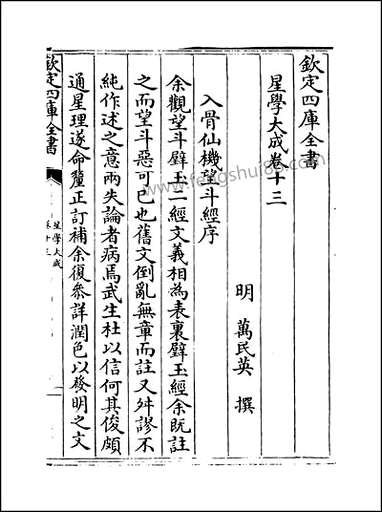 欽定四庫全書
星學大成卷十三
明 萬民英 撰
入骨仙機望斗經序
余觀望斗璧玉二經文義相為表裏璧玉經余既註
之而望斗惡可已也舊文倒亂無章而註又舛謬不
純作述之意兩失論者病焉武生杜以信何其俊頗
通星理遂命釐正訂補余復參詳潤色以發明之文
欽定四庫全書
星學大成
卷十三
www.fengshui86.com